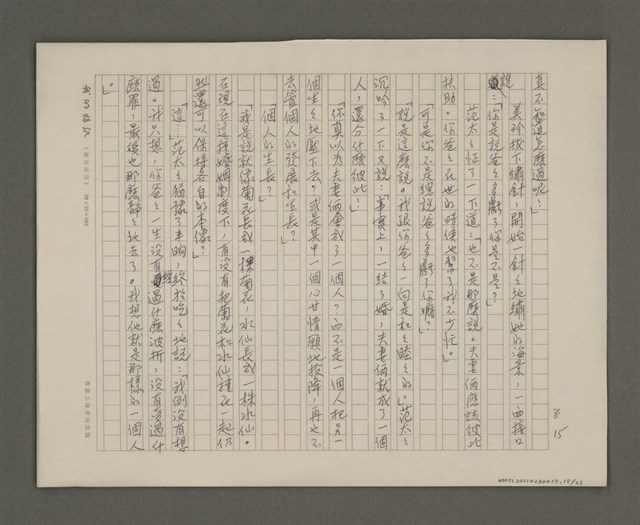 真不知道怎麼過呢?」
美玲放下繡針,開始一針々地繡她的海景,一面接口
說:「你是說爸々多虧了你是不是?」
范太々怔了一下道:「也不是那麼說。夫妻倆應該彼此
扶助。你爸々在世的時候也幫了我不少忙。」
「可是你不是總說爸々多虧了你嗎?」
「說是這麼說。我跟你爸々一向是和々睦々的。」范太々
沉吟了一下又說:「事實上,一結了婚,夫妻倆就成了一個
人,還分什麼彼此?」
「你真以為夫妻倆會成了一個人?而不是一個人把另一
個生々地壓下去?或是其中一個心甘情願地投降,再也不
去管個人的發展和生長?」
「個人的生長?」
「我是說就像菊花長成一棵菊花,水仙長成一株水仙。
在現在這種婚姻制度下,有沒有把菊花和水仙種在一起仍
然還可以保持各自的本樣?」
「這⋯」范太々猶豫了半晌,終於吃々地說:「我倒沒有想
過。我只想,你爸々一生沒有經過什麼波折,沒有受過什
麼罪,最後也那麼靜々地去了。我想他就是那樣的一個人
。」
至 15